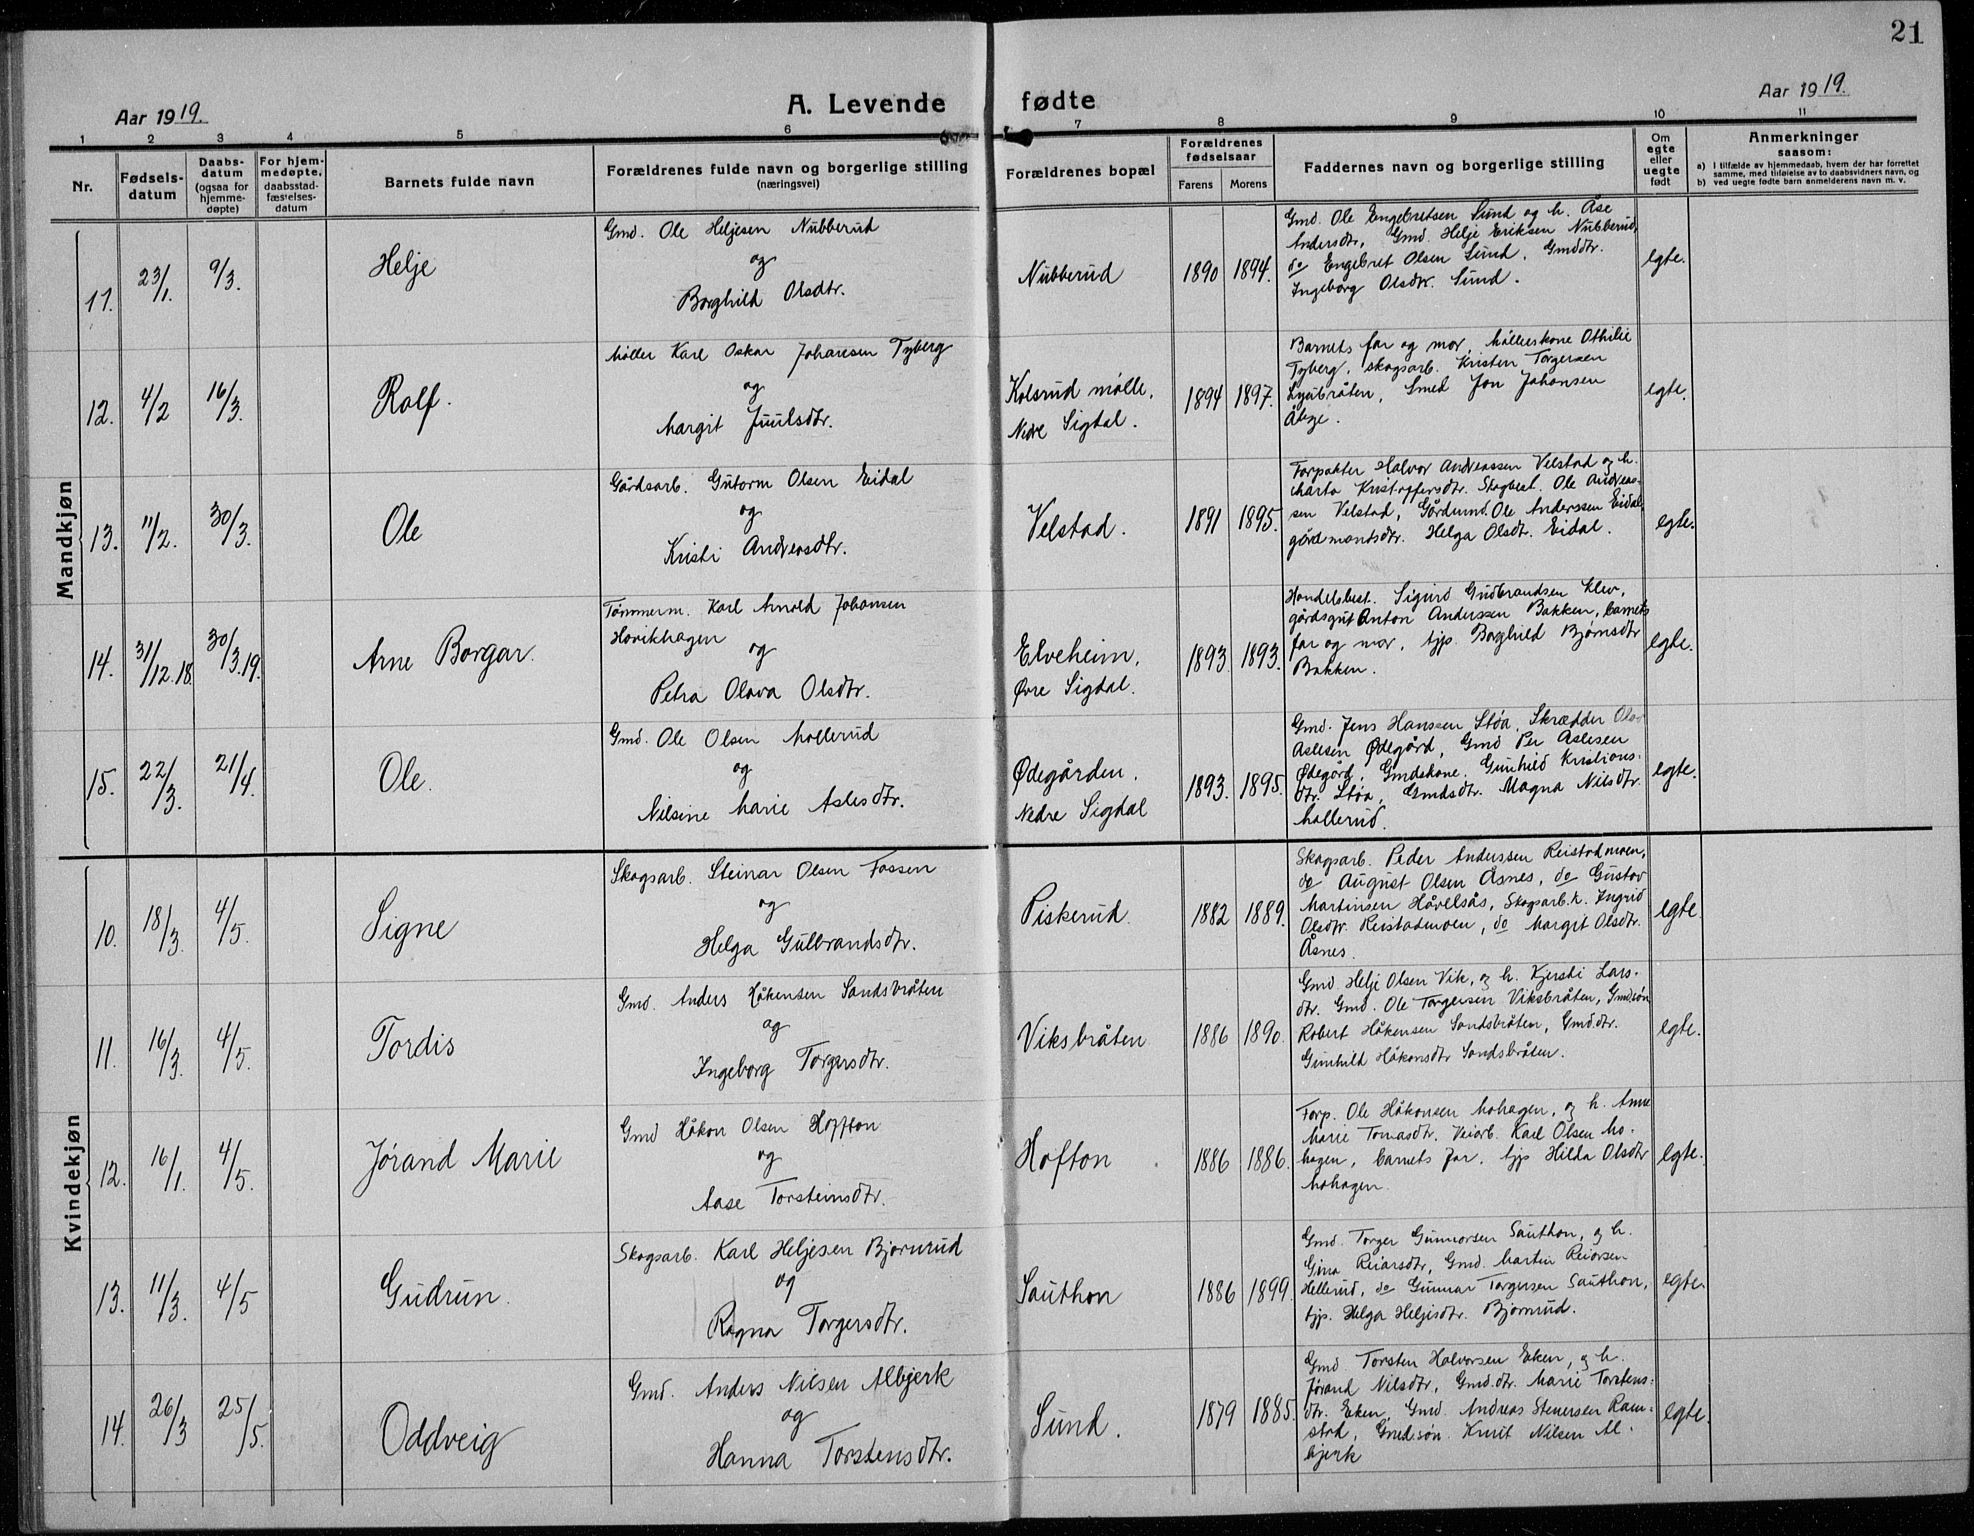 21
Aar 1919.
A. Levende fødte
Aar 1919.
1 2 3 4 5 6 7 8 9 10 11
Nr.
Fødsels-
datum
Daabs-
datum
(ogsaa for
hjemme-
døpte)
For hjem-
medøpte,
daabsstad-
fæstelses-
datum
Barnets fulde navn
Forældrenes fulde navn og borgerlige stilling
(næringsvei)
Forældrenes bopæl
Forældrenes
fødselsaar
Farens Morens
Faddernes navn og borgerlige stilling
Om
egte
eller
uegte
født
Anmerkninger
saasom:
a) I tilfælde av hjemmedaab, hvem der har forrettet
samme, med tilføielse av to daabsvidners navn, og
b) ved uegte fødte barn anmelderens navn m. v.
Mandkjøn
11. 23/1. 9/3. Helje
Gmd. Ole Heljesen Nubberud
og
Borghild Olsdtr.
Nubberud 1890 1894.
Gmd. Ole Engebretsen Sund og h. Åse
Andersdtr, Gmd. Helje Eriksen Nubberud,
do Engebret Olsen Sund, Gmddtr.
Ingeborg Olsdtr. Sund.
egte.
12. 4/2 16/3. Rolf.
Møller Karl Oskar Johansen Tyberg
og
Margit Juulsdtr.
Kolsrud mølle,
Nedre Sigdal.
1894 1897.
Barnets far og mor, møllerkone Othilie
Tyberg, skogsarb. Kristen Torgersen
Lyubråten, Smed Jon Johansen
egte.
13. 11/2. 30/3. Ole
Gårdsarb. Gutorm Olsen Eidal
og
Kristi Andreasdtr.
Velstad. 1891 1895.
Forpakter Halvor Andreassen Velstad og h.
Marta Kristoffersdtr. Skogbest. Ole Andreas-
sen Velstad, Gårdmd. Ole Anderssen Eidal,
gårdmandsdtr. Helga Olsdt. Eidal.
egte.
14. 31/12.18. 30/3.19. Arne Borgar.
Tømmerm. Karl Arnold Johansen
Hovikhagen
og
Petra Olava Olsdtr.
Elveheim,
Øvre Sigdal.
1893 1893.
Handelsbest. Sigurd Gudbrandsen Klev,
gårdsgut Anton Anderssen Bakken, barnets
far og mor, tjp. Borghild Bjørnsdtr
Bakken.
egte.
15. 22/3. 21/4. Ole.
Gmd. Ole Olsen Mollerud
og
Nilsine Marie Aslesdtr.
Ødegården.
Nedre Sigdal
1893. 1895.
Gmd. Jens Hanssen Støa, Skrædder Olav
Aslesen Ødegård, Gmd Per Aslesen
Ødegård, Gmdskone. Gunhild Kristians-
dtr. Støa, Gmdsdtr. Magna Nilsdtr.
Mollerud.
egte.
Kvindekjøn
10. 18/3. 4/5. Signe
Skogsarb. Steinar Olsen Fossen
og
Helga Gulbrandsdtr.
Piskerud. 1882 1889.
Skogsarb. Peder Anderssen Reistadmoen,
do August Olsen Åsnes, do Gustav
Martinsen Håvelsås, Skogsarb.k. Ingrid
Olsdtr. Reistadmoen, do Margit Olsdtr.
Åsnes.
egte.
11. 16/3. 4/5. Tordis
Gmd. Anders Håkensen Sandsbråten
og
Ingeborg Torgersdtr.
Viksbråten 1886 1890.
Gmd Helje Olsen Vik, og h. Kjersti Lars-
dtr. Gmd. Ole Torgersen Viksbråten, Gmd.søn
Robert Håkensen Sandsbråten, Gmd.dtr.
Gunhild Håkonsdtr Sandsbråten.
egte.
12. 16/1. 4/5. Jørand Marie
Gmd Håkon Olsen Hoffton
og
Aase Torsteinsdtr.
Hofton 1886 1886.
Forp. Ole Håkonsen Mohagen, og h. Anne
Marie Tomasdtr. Veiarb. Karl Olsen Mo-
hagen, barnets far, tjp Hilda Olsdtr
Mohagen.
egte.
13. 11/3. 4/5 Gudrun.
Skogsarb. Karl Heljesen Bjørnrud
og
Ragna Torgersdtr.
Sauthon 1886 1899.
Gmd. Torger Gunnarsen Sauthon, og h.
Gina Reiarsdtr, Gmd. Martin Reiarsen
Hellerud, do Gunnar Torgersen Sauthon,
tjp. Helga Heljesdtr. Bjørnrud.
egte.
14. 26/3 25/5. Oddveig
Gmd. Anders Nilsen Albjerk
og
Hanna Torstensdtr.
Sund. 1879 1885.
Gmd. Torsten Halvorsen Eken, og h.
Jørand Nilsdtr, Gmd.dtr. Marie Torstens-
dtr. Eken, Gmd. Andreas Stenersen Ram-
stad, Gmd.søn. Knut Nilsen Al-
bjerk
egte.